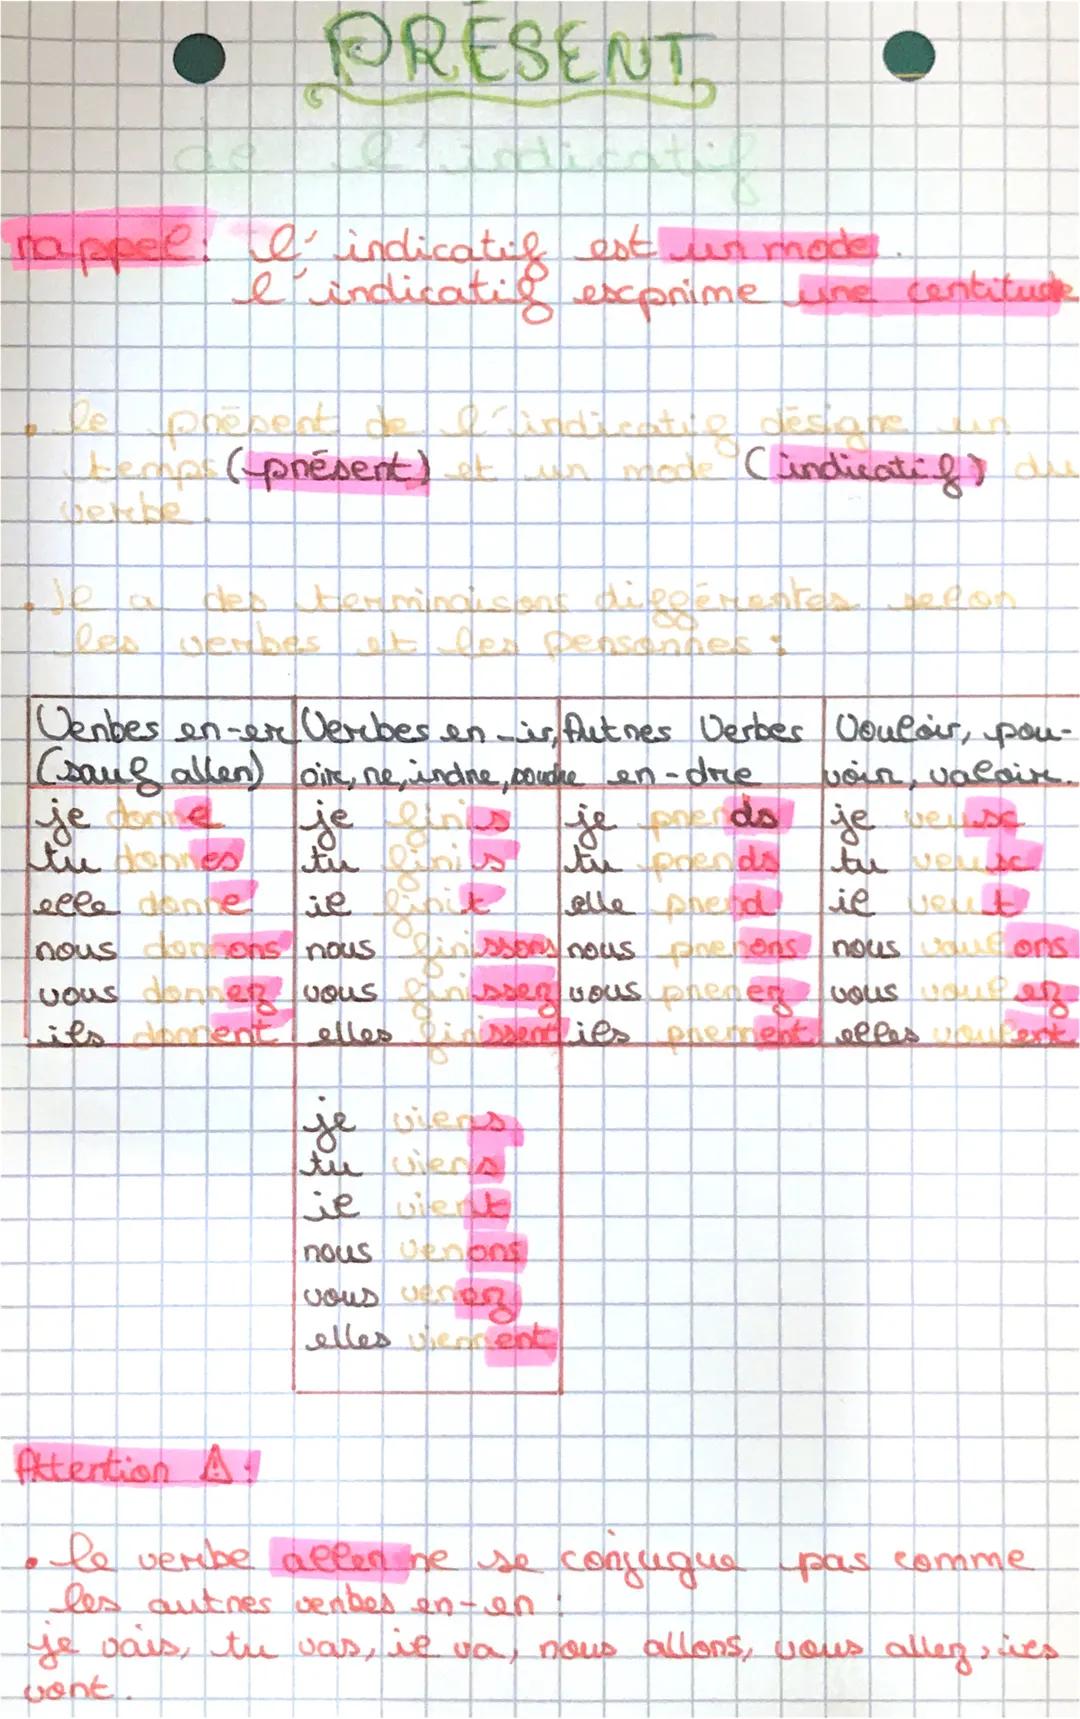 PRÉSENT
de l'indicatif
rappel: l'indicatif est un mode.
l'indicatif exprime une certitude
• le présent de l'indicatif désigne un
temps (présent) et un mode (indicatif) du
verbe.
• Il a des terminaisons différentes selon
les verbes et les personnes :
Verbes en -er (sauf aller)
je donne
tu donnes
elle donne
nous donnons
vous donnez
ils donnent
Verbes en -ir, oire, re, indre, soudre
je finis
tu finis
il finit
nous finissons
vous finissez
elles finissent
je viens
tu viens
il vient
nous venons
vous venez
elles viennent
Autres Verbes en -dre
je prends
tu prends
elle prend
nous prenons
vous prenez
ils prennent
Vouloir, pouvoir, valoir.
je veux
tu veux
il veut
nous voulons
vous voulez
elles veulent
Attention ⚠ :
• le verbe aller ne se conjugue pas comme
les autres verbes en -er :
je vais, tu vas, il va, nous allons, vous allez, ils
vont.